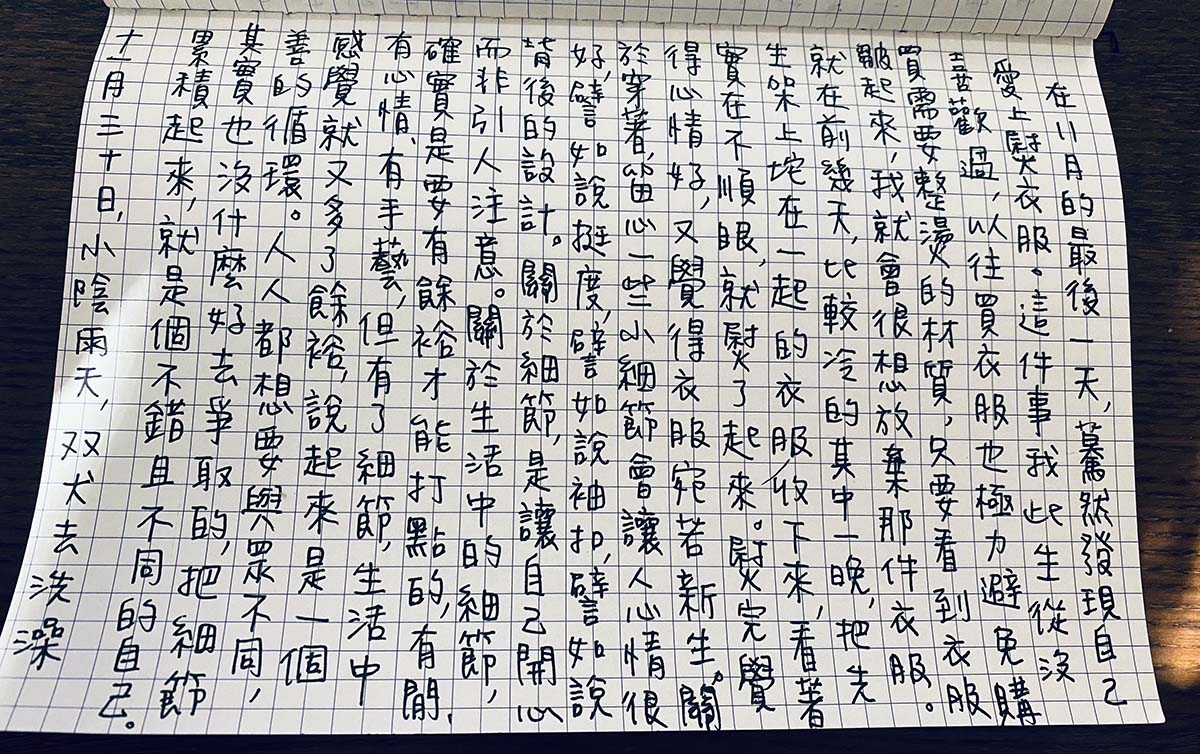 在11月的最後一天,驀然發現自己
愛上熨衣服。這件事我此生從沒
喜歡過,以往買衣服也極力避免購
買需要整燙的材質,只要看到衣服
皺起來,我就會很想放棄那件衣服。
就在前幾天,比較冷的其中一晚,把先
生架上坨在一起的衣服收下來,看著
實在不順眼,就熨了起來。熨完覺
得心情好,又覺得衣服宛若新生。關
於穿著,留心一些小細節會讓人心情很
好,譬如說挺度,譬如說袖扣,譬如說
背後的設計。關於細節,是讓自己開心
而非引人注意。關於生活中的細節,
確實是要有餘裕才能打點的,有閒、
有心情、有手藝,但有了細節,生活中
感覺就又多了餘裕,說起來是一個
善的循環。人人都想要與眾不同,
其實也沒什麼好去爭取的,把細節
累積起來,就是個不錯且不同的自己。
十一月三十日,小陰雨天,双犬去洗澡